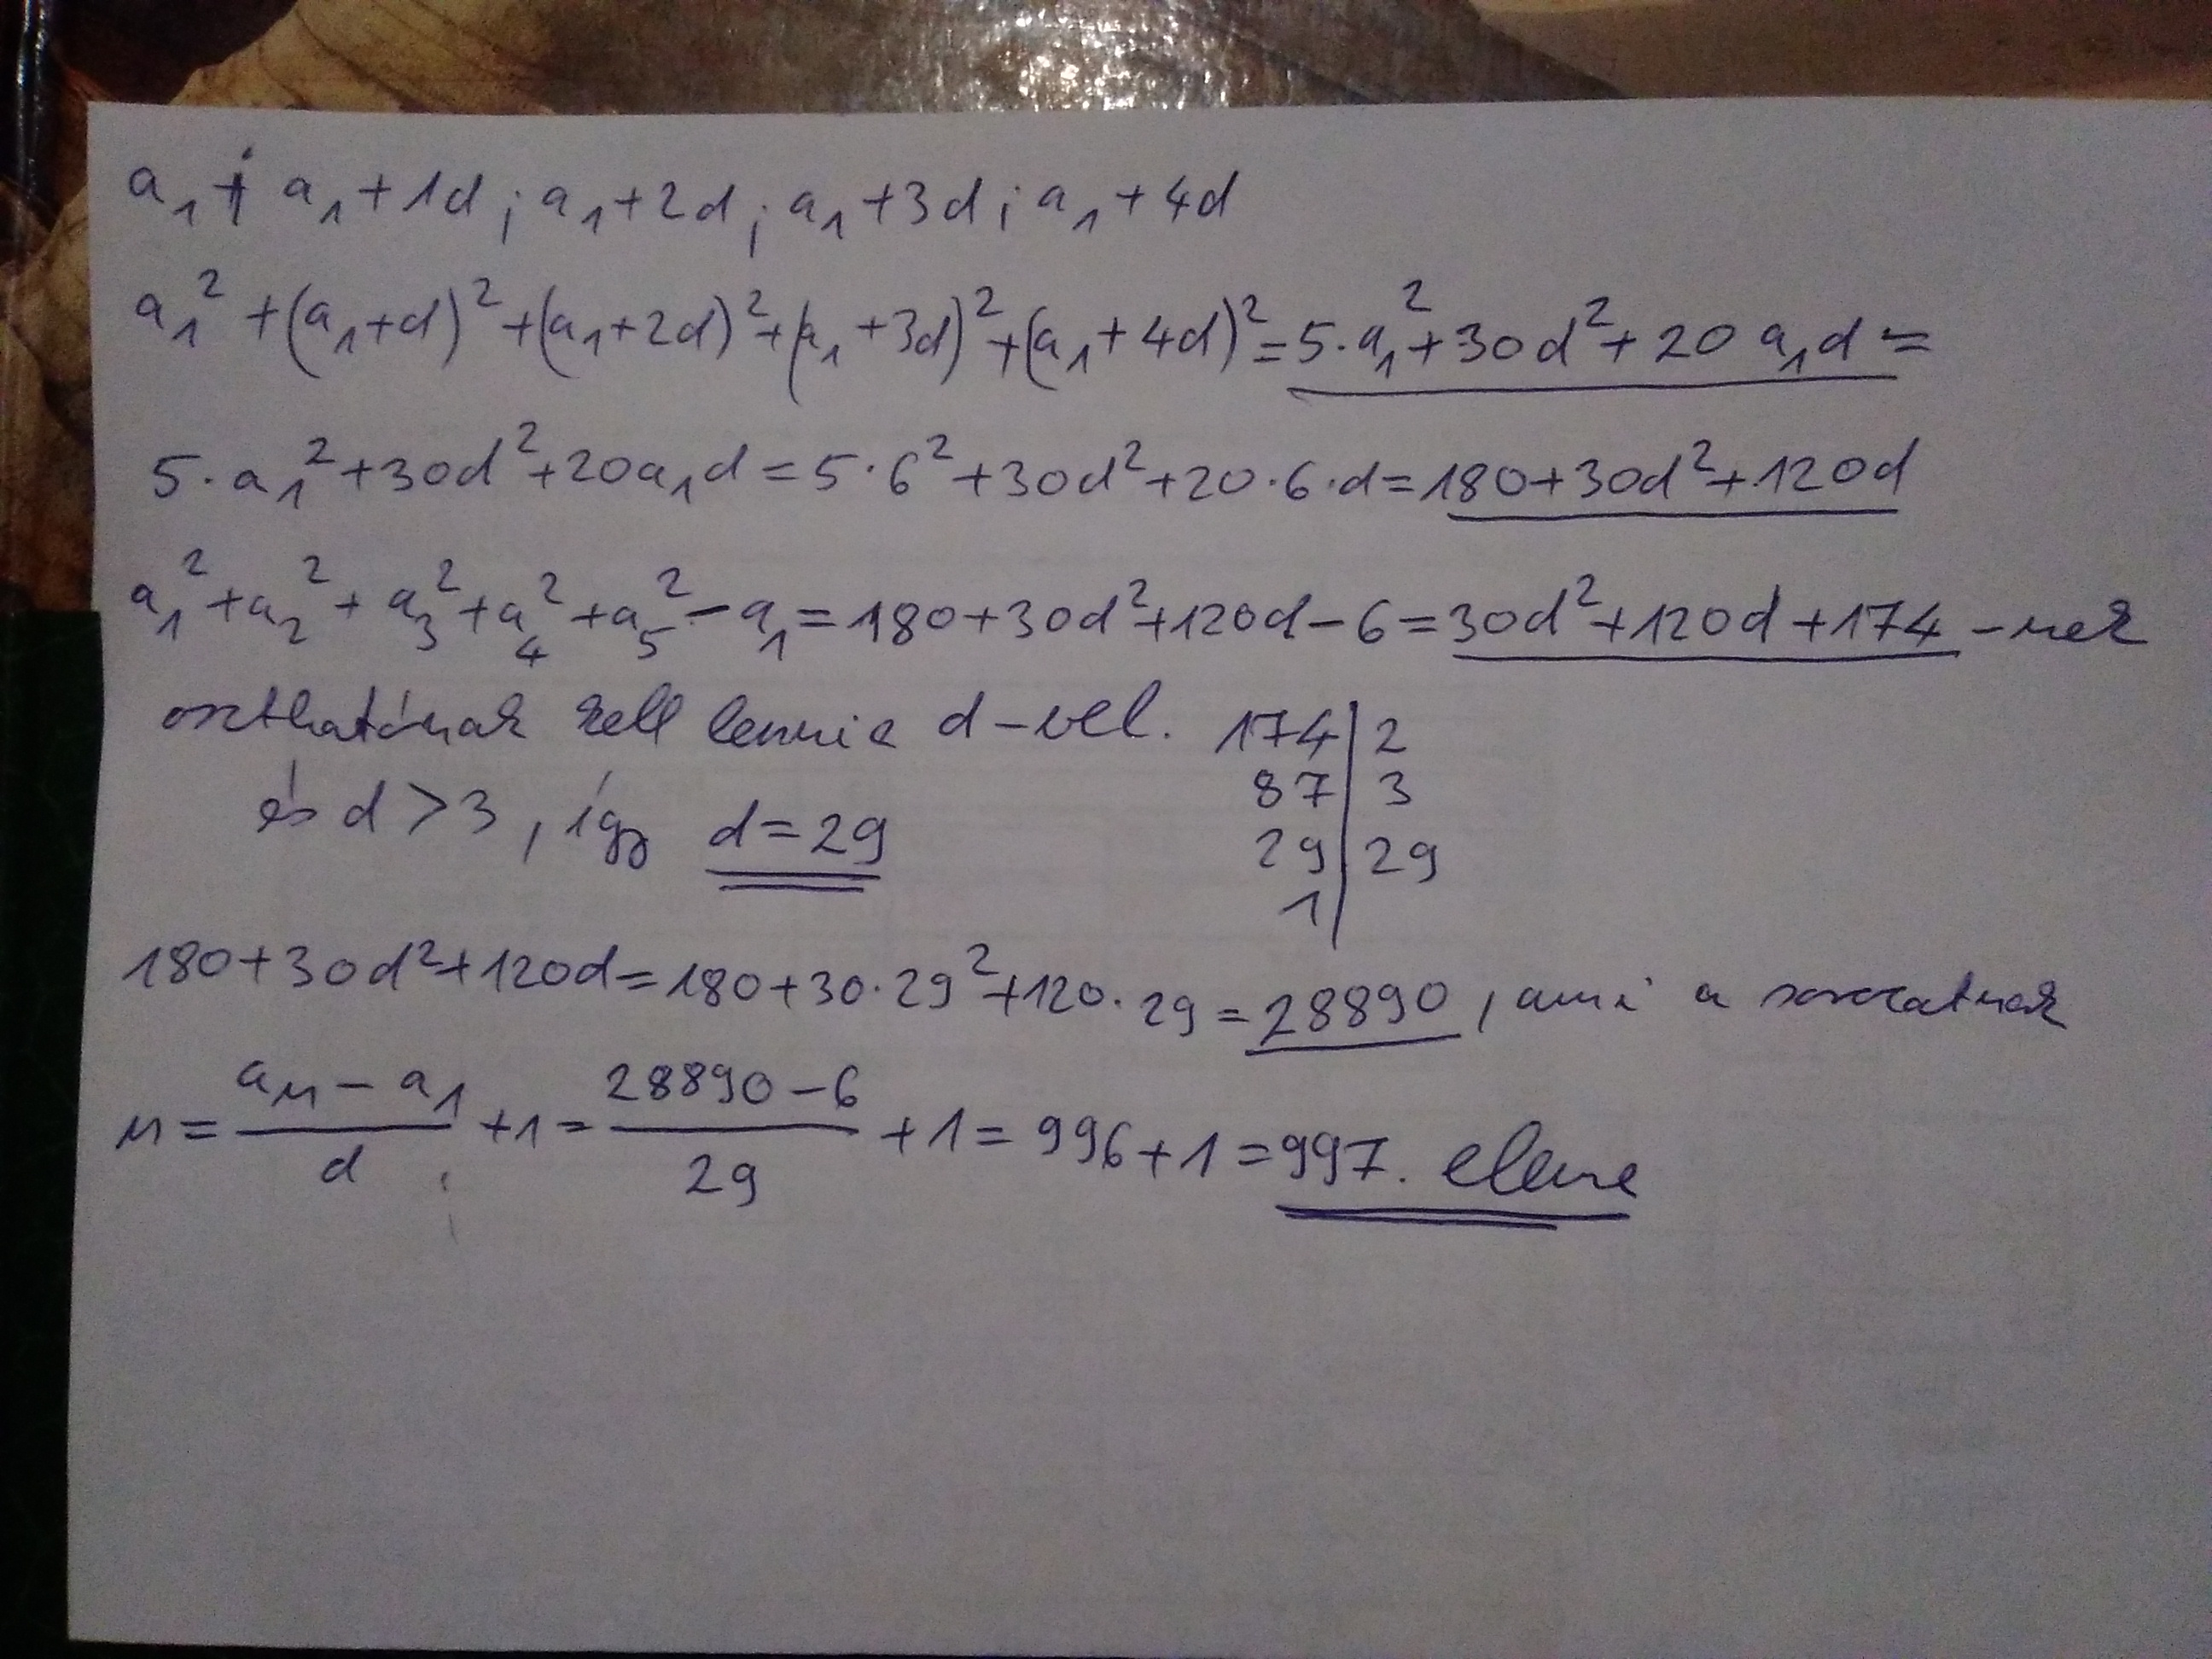 a₁; a₁+1d; a₁+2d; a₁+3d; a₁+4d
a₁²+(a₁+d)²+(a₁+2d)²+(a₁+3d)²+(a₁+4d)²=5·a₁²+30d²+20a₁d=
5·a₁²+30d²+20a₁d=5·6²+30d²+20·6·d=180+30d²+120d
a₁²+a₂²+a₃²+a₄²+a₅²-a₁=180+30d²+120d-6=30d²+120d+174-nek
oszthatónak kell lennie d-vel. 174|2
87|3
és d>3, így d=29 29|29
1|
180+30d²+120d=180+30·29²+120·29=28890, ami a sorozatnak
n=\frac{aₙ-a₁}{d}+1=\frac{28890-6}{29}+1=996+1=997. eleme